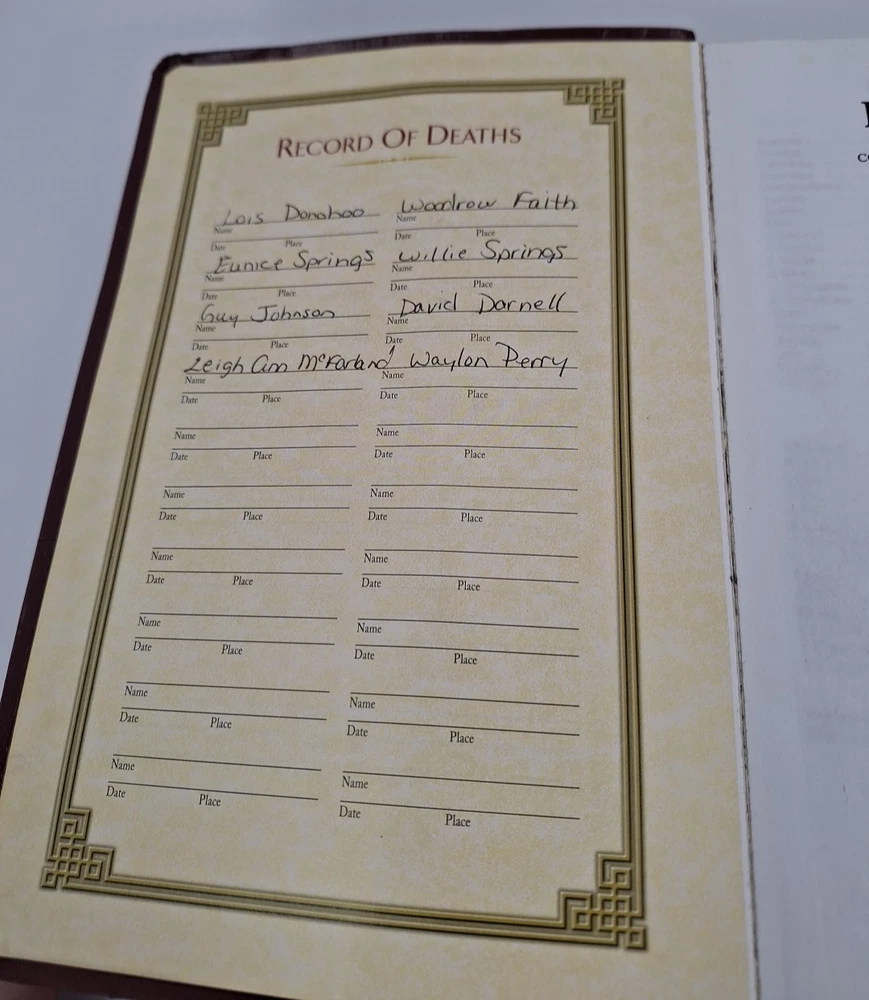 RECORD OF DEATHS
Lois Donohoo Woodrow Faith
Name Name
Date Place Date Place
Eunice Springs Willie Springs
Name Name
Date Place Date Place
Guy Johnson David Darnell
Name Name
Date Place Date Place
Leigh Ann McFarland Waylon Perry
Name Name
Date Place Date Place
Name Name
Date Place Date Place
Name Name
Date Place Date Place
Name Name
Date Place Date Place
Name Name
Date Place Date Place
Name Name
Date Place Date Place
Name Name
Date Place Date Place